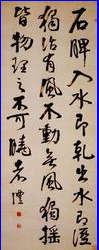 石脾入水即乾出水即濕
獨活有風不動無風獨搖
皆物理之不可曉者